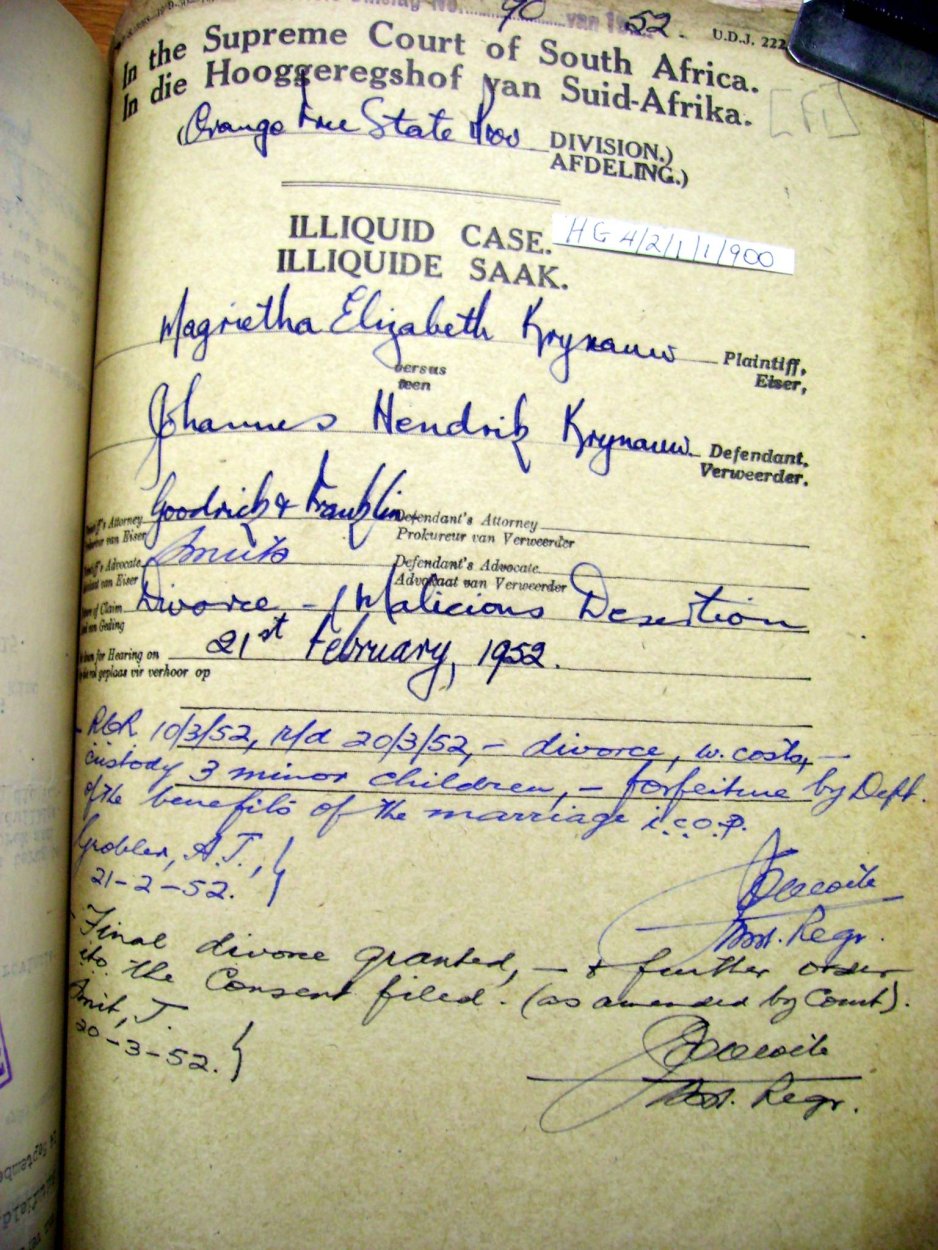 No. 40 van 1952.
U.D.J. 222
In the Supreme Court of South Africa.
In die Hooggeregshof van Suid-Afrika.
(Orange Free State Prov DIVISION.)
AFDELING.)
ILLIQUID CASE.
HG 4/2/1/1/900
ILLIQUIDE SAAK.
Magrietha Elizabeth Krynauw Plaintiff,
Eiser,
versus
teen
Johannes Hendrik Krynauw Defendant.
Verweerder.
Goodrick & Franklin
's Attorney
van Eiser
Defendant's Attorney
Prokureur van Verweerder
's Advocate
van Eiser
Defendant's Advocate
Advokaat van Verweerder
of Claim Divorce, – Malicious Desertion
van Geding
for Hearing on 21st February, 1952.
rol geplaas vir verhoor op
- RCR 10/3/52, r/d 20/3/52, – divorce, w. costs, –
custody 3 minor children, – forfeiture by Deft.
of the benefits of the marriage i.c.o.p.
Grobler, A.J., }
21-2-52.
Asst. Regr.
- Final divorce granted, – & further order
ito the Consent filed. (as amended by Court).
Smit, J. }
20-3-52.
Asst. Regr.